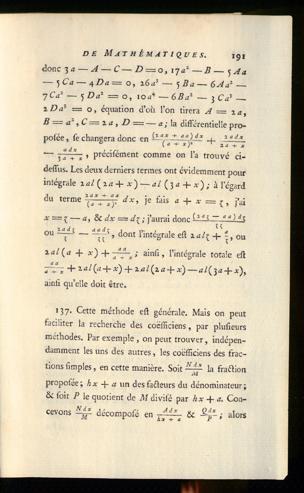 DE MATHÉMATIQUES. 191
donc 3a — A — C — D = 0, 17a² — B — 5Aa
— 5Ca — 4Da = 0, 26a² — 5Ba — 6Aa² —
7Ca² — 5Da² = 0, 10a⁴ — 6Ba² — 3Ca³ —
2Da³ = 0, équation d'où l'on tirera A = 2a,
B = a², C = 2a, D = — a; la différentielle pro-
posée, se changera donc en (2ax + aa)dx / (a + x)² + 2adx / 2a + x
— adx / 3a + x, précisément comme on l'a trouvé ci-
dessus. Les deux derniers termes ont évidemment pour
intégrale 2al(2a + x) — al(3a + x); à l'égard
du terme 2ax + aa / (a + x)² dx, je fais a + x = ζ, j'ai
x = ζ — a, & dx = dζ; j'aurai donc (2aζ — aa)dζ / ζζ
ou 2adζ / ζ — aadζ / ζζ, dont l'intégrale est 2alζ + aa / ζ, ou
2al(a + x) + aa / a + x; ainsi, l'intégrale totale est
aa / a + x + 2al(a + x) + 2al(2a + x) — al(3a + x),
ainsi qu'elle doit être.
137. Cette méthode est générale. Mais on peut
faciliter la recherche des coëfficiens, par plusieurs
méthodes. Par exemple, on peut trouver, indépen-
damment les uns des autres, les coëfficiens des frac-
tions simples, en cette manière. Soit Ndx / M la fraction
proposée; hx + a un des facteurs du dénominateur;
& soit P le quotient de M divisé par hx + a. Con-
cevons Ndx / M décomposé en Adx / hx + a & Qdx / P; alors